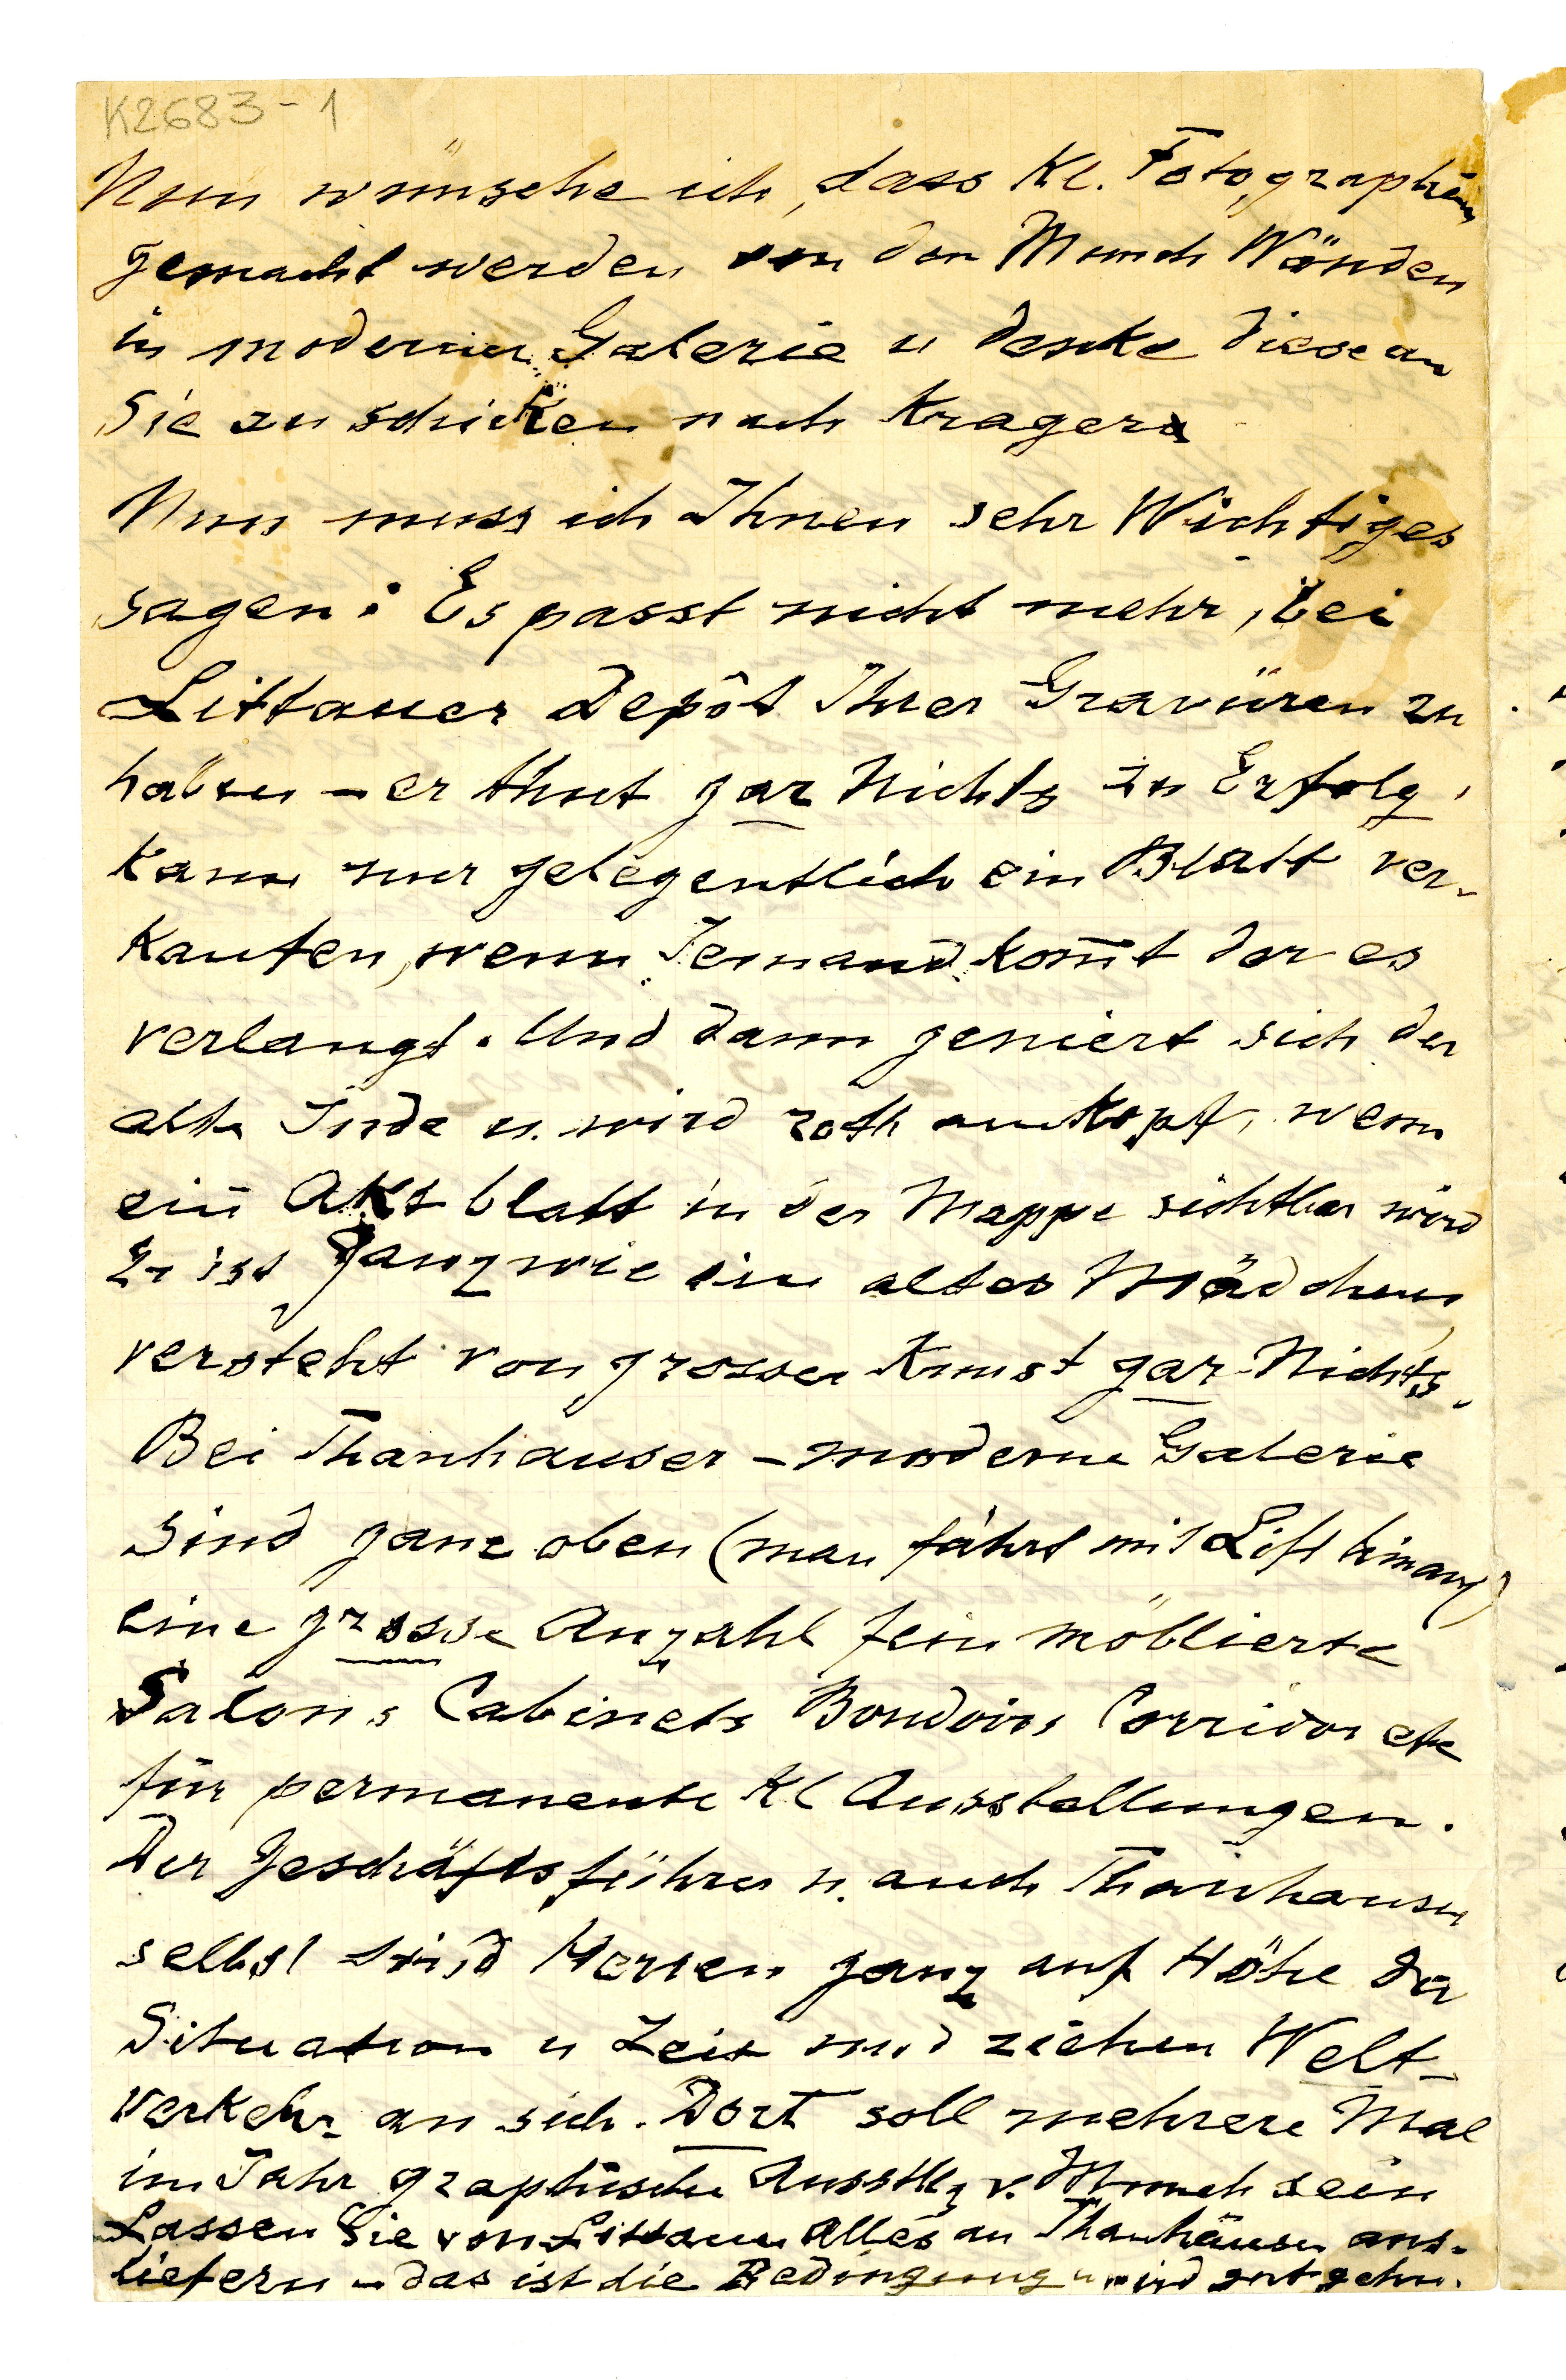 K2683-1
Nun wünsche ich, dass kl. Fotographien
gemacht werden von den Munch Wänden
in moderner Galerie u denke diese an
Sie zu schicken nach Kragerø
Nun muss ich Ihnen sehr Wichtiges
sagen: Es passt nicht mehr, bei
Littauer Depôt Ihrer Gravüren zu
haben – er thut gar Nichts zu Erfolg,
kann nur gelegentlich ein Blatt ver-
kaufen, wenn Jemand kom̅t der es
verlangt. Und dann geniert sich der
alte Jude u. wird roth am Kopf, wenn
ein Aktblatt in der Mappe sichtbar wird
Er ist ganz wie ein altes Mädchen,
versteht von grosser Kunst gar Nichts.
Bei Thanhauser – moderne Galerie
sind ganz oben (man fährt mit Lift hinauf)
eine grosse Anzahl fein möblierte
Salons Cabinets Boudoirs Corridor etc
für permanente kl Ausstellungen.
Der Geschäftsführer u. auch Thanhauser
selbst sind Herren ganz auf Höhe der
Situation u Zeit und ziehen Welt-
verkehr an sich. Dort soll mehrere Mal
im Jahr graphische Ausstllg v. Munch sein
Lassen Sie von Littauer Alles an Thanhäuser aus-
liefern – das ist die Bedingung u wird gut gehn.